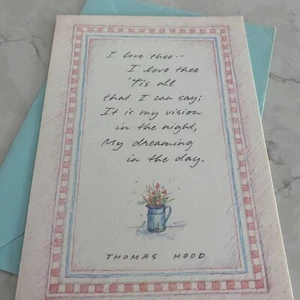 I love thee --
I love thee
'Tis all
that I can say;
It is my vision
in the night,
My dreaming
in the day.
THOMAS HOOD